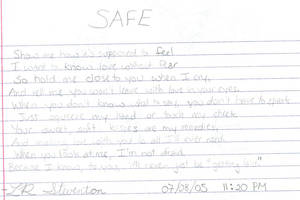 SAFE
Show me how it's supposed to feel
I want to know love without fear
So hold me close to you when I cry,
And tell me you won't leave with love in your eyes.
When you don't know what to say, you don't have to speak
Just squeeze my hand or touch my cheek.
Your sweet, soft kisses are my remedies,
And making love with you is all I'll ever need.
When you look at me, I'm not afraid,
Because I know, to you, I'll never just be "getting laid"
07/28/05 11:20 PM